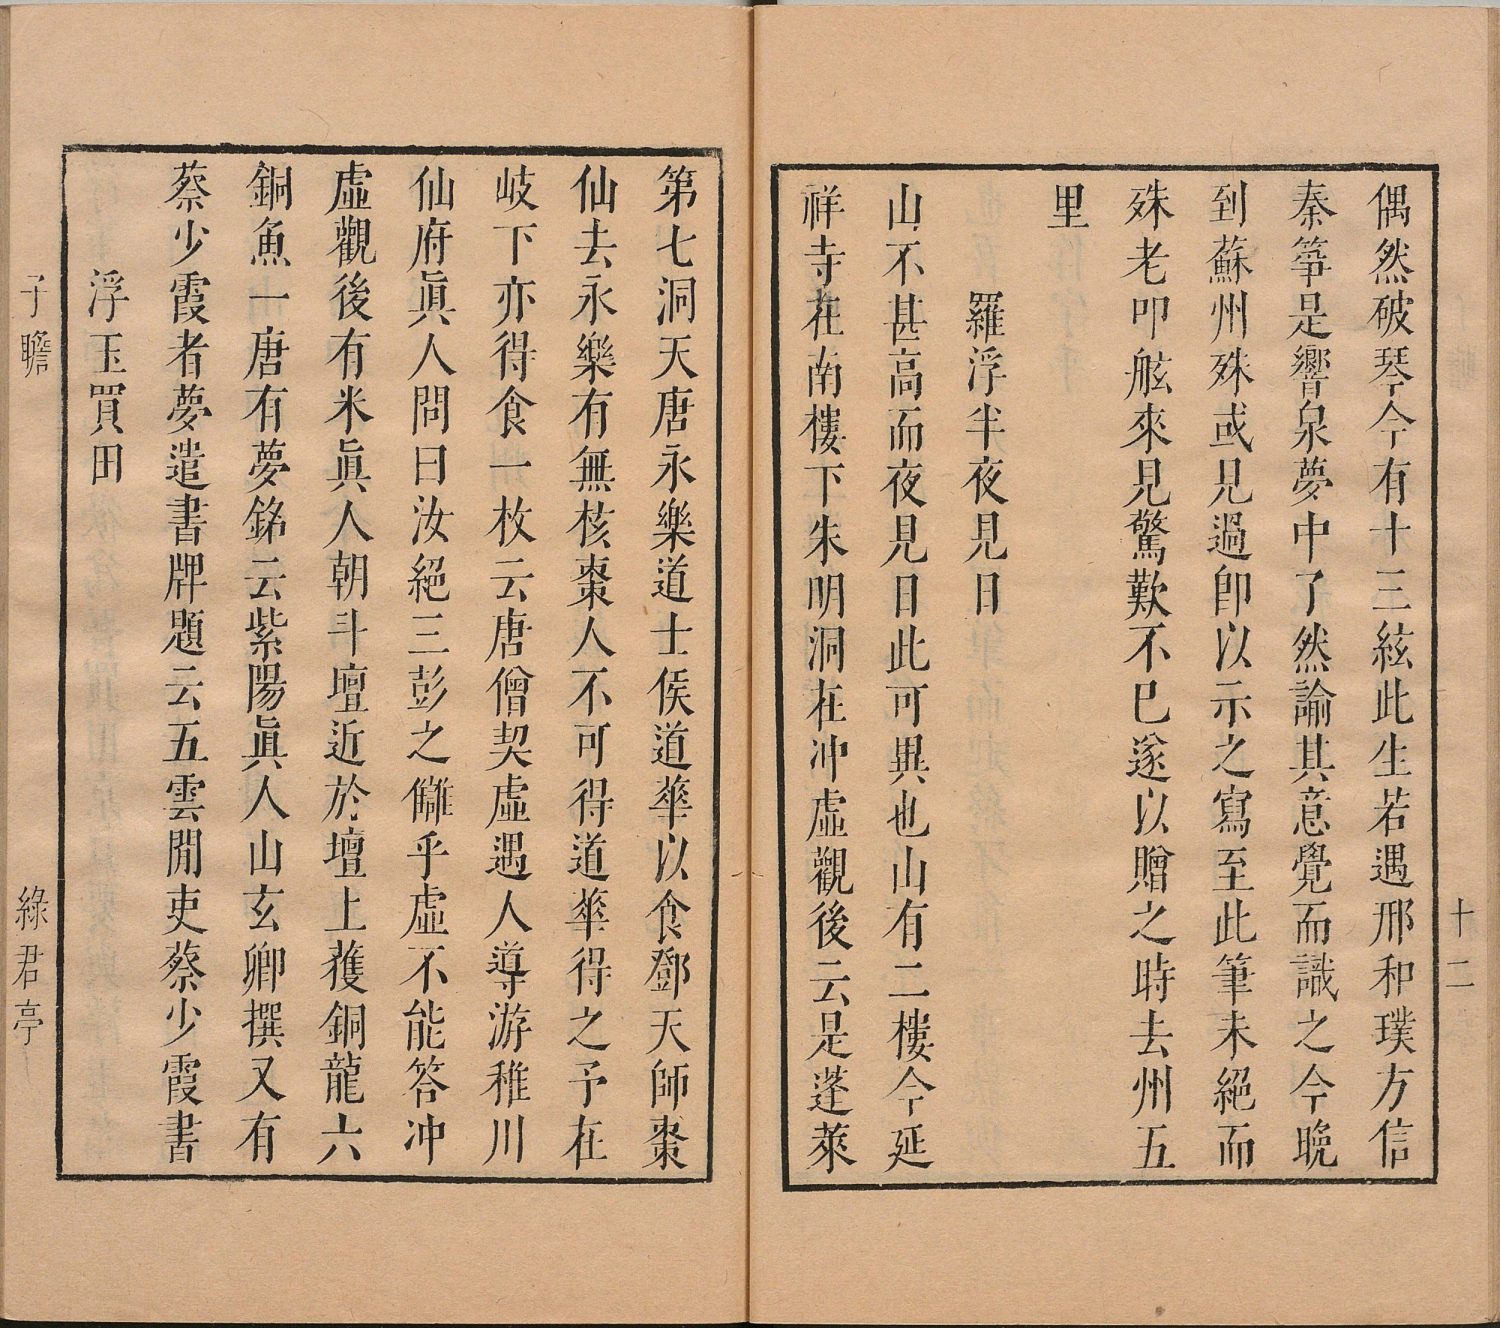 十二
偶然破琴今有十三絃此生若遇邢和璞方信
秦箏是響泉夢中了然論其意覺而識之今晚
到蘇州殊或見過卽以示之寫至此筆未絕而
殊老叩舷來見驚歎不已遂以贈之時去州五
里
羅浮半夜見日
山不甚高而夜見日此可異也山有二樓今延
祥寺在南樓下朱明洞在冲虛觀後云是蓬萊
第七洞天唐永樂道士侯道華以食鄧天師棗
仙去永樂有無核棗人不可得道華得之予在
岐下亦得食一枚云唐僧契虛遇人導游稚川
仙府眞人問曰汝絕三彭之讎乎虛不能答冲
虛觀後有米眞人朝斗壇近於壇上獲銅龍六
銅魚一唐有夢銘云紫陽眞人山玄卿撰又有
蔡少霞者夢遣書牌題云五雲閣吏蔡少霞書
浮玉買田
子瞻
綠君亭